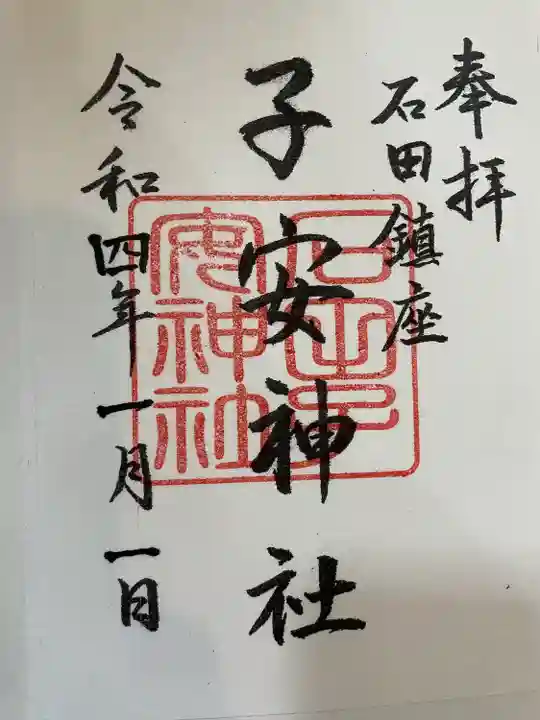 奉拝
石田鎮座
子安神社
石田子安神社
令和四年一月一日